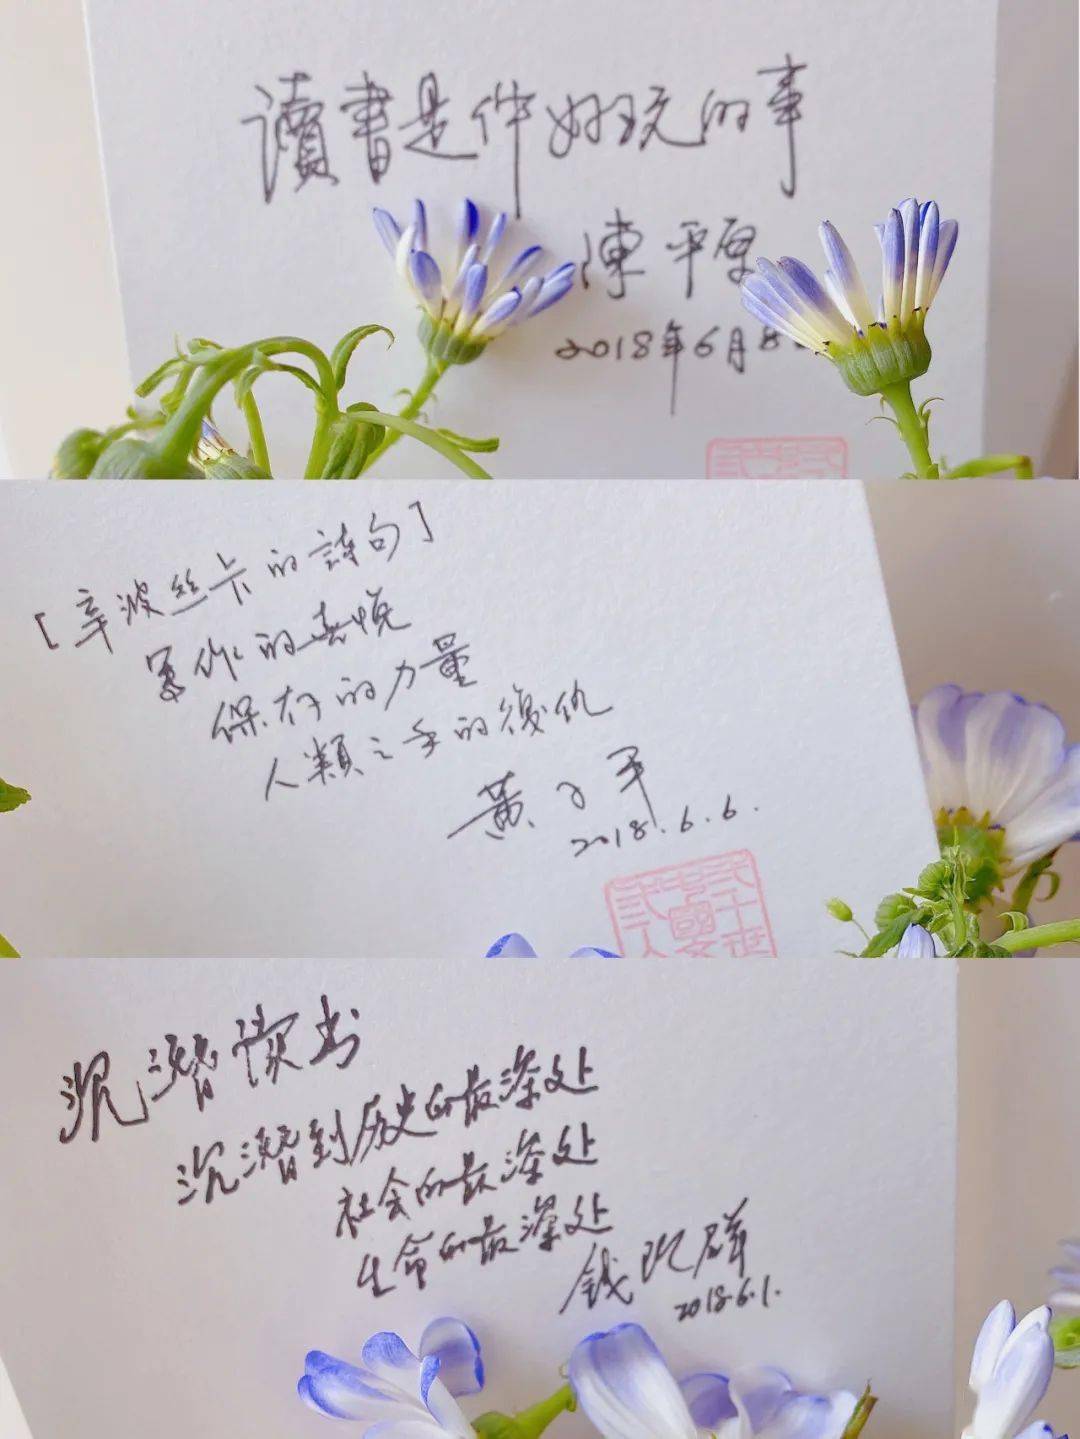 讀書是件好玩的事
陳平原
2018年6月8
[辛波丝卡的詩句]
寫作的喜悅
保存的力量
人類之手的復仇
黃子平
2018.6.6.
沉潜读书
沉潜到历史的最深处
社会的最深处
生命的最深处
钱理群
2018.6.1.